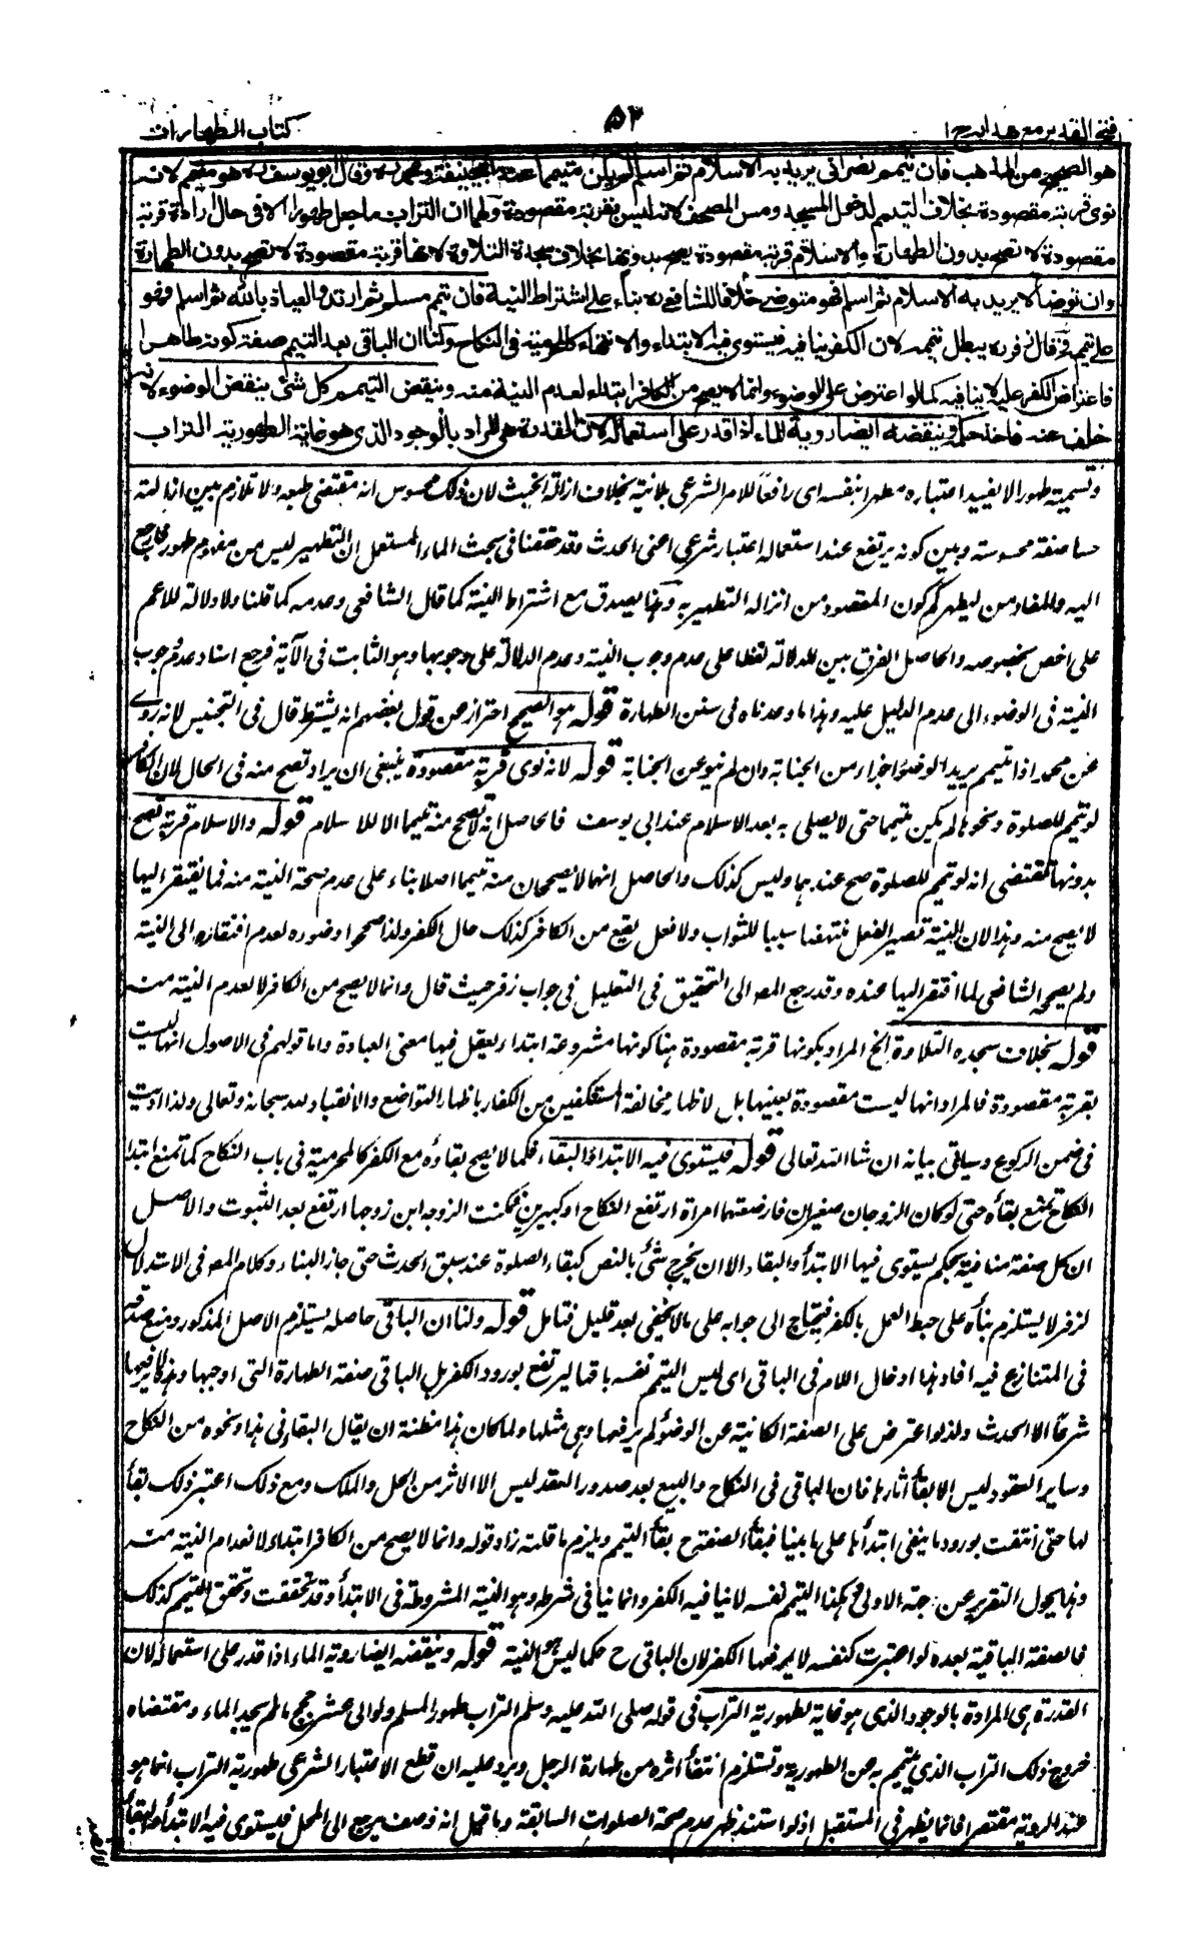 فتح القدير مع هدايه ج ا
٥٢
كتاب الطهارات
هو الصحيح من المذهب فان تيمم نصرانى يريد به الاسلام ثم اسلم لم يكن متيمما عند ابى حنيفة ومحمد وقال ابو يوسف هو متيمم لانه
نوى قربة مقصودة بخلاف التيمم لدخول المسجد ومس المصحف لانه ليس بقربة مقصودة ولهما ان التراب ما جعل طهورا الا فى حال ارادة قربة
مقصودة لا تصح بدون الطهارة والاسلام قربة مقصودة يصح بدونها بخلاف سجدة التلاوة لانها قربة مقصودة لا تصح بدون الطهارة
وان توضأ لا يريد به الاسلام ثم اسلم فهو متوضئ خلافا للشافعى بناء على اشتراط النية فان تيمم مسلم ثم ارتد والعياذ بالله ثم اسلم فهو
على تيممه وقال زفر يبطل تيممه لان الكفر ينافيه فيستوى فيه الابتداء والانتهاء كالمحرمية فى النكاح ولنا ان الباقى بعد التيمم صفة كونه طاهرا
فاعتراض الكفر عليه لا ينافيه كما لو اعترض على الوضوء وانما لا يصح من الكافر ابتداء لعدم النية منه وينقض التيمم كل شئ ينقض الوضوء لانه
خلف عنه فاخذ حكمه وينقضه ايضا روية الماء اذا قدر على استعماله لان القدرة هى المراد بالوجود الذى هو غاية الطهورية التراب
وتسمية طهورا لا يفيد اعتباره مطهرا بنفسه اى رافعا للامر الشرعى بلا نية بخلاف ازالة الخبث لان ذلك محسوس انه مقتضى طبعه ولا تلازم بين ازالته
حسا صفة محسوسة وبين كونه يرتفع عند استعماله اعتبار شرعى اعنى الحدث وقد حققنا فى بحث الماء المستعمل ان التطهير ليس من مفهوم طهور فارجع
اليه والمفاد من ليطهركم كون المقصود من انزاله التطهير به وهذا يصدق مع اشتراط النية كما قال الشافعى وعدمه كما قلنا ولا دلالة للاعم
على اخص بخصوصه والحاصل الفرق بين الدلالة لفظا على عدم وجوب النية وعدم الدلالة على وجوبها وهو الثابت فى الآية فرجع اسناد عدم وجوب
النية فى الوضوء الى عدم الدليل عليه وهذا ما وعدناه فى سنن الطهارة قوله هو الصحيح احتراز عن قول بعضهم انه يشترط قال فى التجنيس لانه روى
عن محمد اذا تيمم يريد الوضوء اجزاه من الجنابة وان لم ينو عن الجنابة قوله لانه نوى قربة مقصودة ينبغى ان يراد تصح منه فى الحال لان الكافر
لو تيمم للصلوة ونحوها لم يكن متيمما حتى لا يصلى به بعد الاسلام عند ابى يوسف فالحاصل انه لا يصح منه تيمما الا للاسلام قوله والاسلام قربة تصح
بدونها يقتضى انه لو تيمم للصلوة صح عندهما وليس كذلك والحاصل انهما لا يصححان منه تيمما اصلا بناء على عدم صحة النية منه فما يفتقر اليها
لا يصح منه وهذا لان النية تصير الفعل منتهضا سببا للثواب ولا فعل يقع من الكافر كذلك حال الكفر ولذا صححوا وضوءه لعدم افتقاره الى النية
ولم يصححه الشافعى لما افتقر اليها عنده وقد رجع المص الى التحقيق فى التعليل فى جواب زفر حيث قال وانما لا يصح من الكافر لانعدام النية منه
قوله بخلاف سجدة التلاوة الخ المراد بكونها قربة مقصودة هنا كونها مشروعة ابتداء يعقل فيها معنى العبادة واما قولهم فى الاصول انها ليست
بقربة مقصودة فالمراد انها ليست مقصودة بعينها بل لاظهار مخالفة المستنكفين من الكفار باظهار التواضع والانقياد له سبحانه وتعالى ولذا اديت
فى ضمن الركوع وسياتى بيانه ان شاء الله تعالى قوله فيستوى فيه الابتداء والبقاء فكما لا يصح بقاؤه مع الكفر كالمحرمية فى باب النكاح كما تمنع ابتداء
النكاح تمنع بقاءه حتى لو كان الزوجان صغيران فارضعتهما امراة ارتفع النكاح او كبيرين فمكنت الزوجة ابن زوجها ارتفع بعد الثبوت والاصل
ان كل صفة منافية لحكم يستوى فيها الابتداء والبقاء الا ان يخرج شئ بالنص كبقاء الصلوة عند سبق الحدث حتى جاز البناء وكلام المص فى الاستدلال
لزفر لا يستلزم بناءه على حبط العمل بالكفر فيحتاج الى جوابه على ما لا يخفى بعد قليل فتامل قوله ولنا ان الباقى حاصله يستلزم الاصل المذكور ويمنع صدقه
فى المتنازع فيه افاد هذا ادخال اللام فى الباقى اى ليس التيمم نفسه باقيا ليرتفع بورود الكفر بل الباقى صفة الطهارة التى اوجبها وهذا لا يرفعها
شرعا الا الحدث ولذا لو اعترض على الصفة الكائنة عن الوضوء لم يرفعها وهى مثلها ولما كان هذا مظنة ان يقال البقاء فى هذا ونحوه من النكاح
وساير العقود ليس الا بقاء آثارها فان الباقى فى النكاح والبيع بعد صدور العقد ليس الا الاثر من الحل والملك ومع ذلك اعتبر ذلك بقاء
لها حتى انتفت بورود ما ينفى ابتداءها على ما بينا فبقاء الصفة ح بقاء التيمم ويلزم ما قلته زاد قوله وانما لا يصح من الكافر ابتداء لانعدام النية منه
وهذا يحول التقرير عن جهة الاولى هكذا التيمم نفسه لا ينافيه الكفر وانما ينافى شرطه وهو النية المشروطة فى الابتداء وقد تحققت وتحقق التيمم كذلك
فالصفة الباقية بعده لو اعتبرت كنفسه لا يرفعها الكفر لان الباقى ح حكما ليس هو النية قوله وينقضه ايضا روية الماء اذا قدر على استعماله لان
القدرة هى المرادة بالوجود الذى هو غاية لطهورية التراب فى قوله صلى الله عليه وسلم التراب طهور المسلم ولو الى عشر حجج ما لم يجد الماء ومقتضاه
خروج ذلك التراب الذى تيمم به عن الطهورية وتستلزم انتفاء اثره من طهارة الرجل ويرد عليه ان قطع الاعتبار الشرعى طهورية التراب انما هو
عند الروية مقتصرا فانما يظهر فى المستقبل اذ لو استند ظهر عدم صحة الصلوات السابقة وما قيل انه وصف يرجع الى المحل فيستوى فيه الابتداء والبقاء